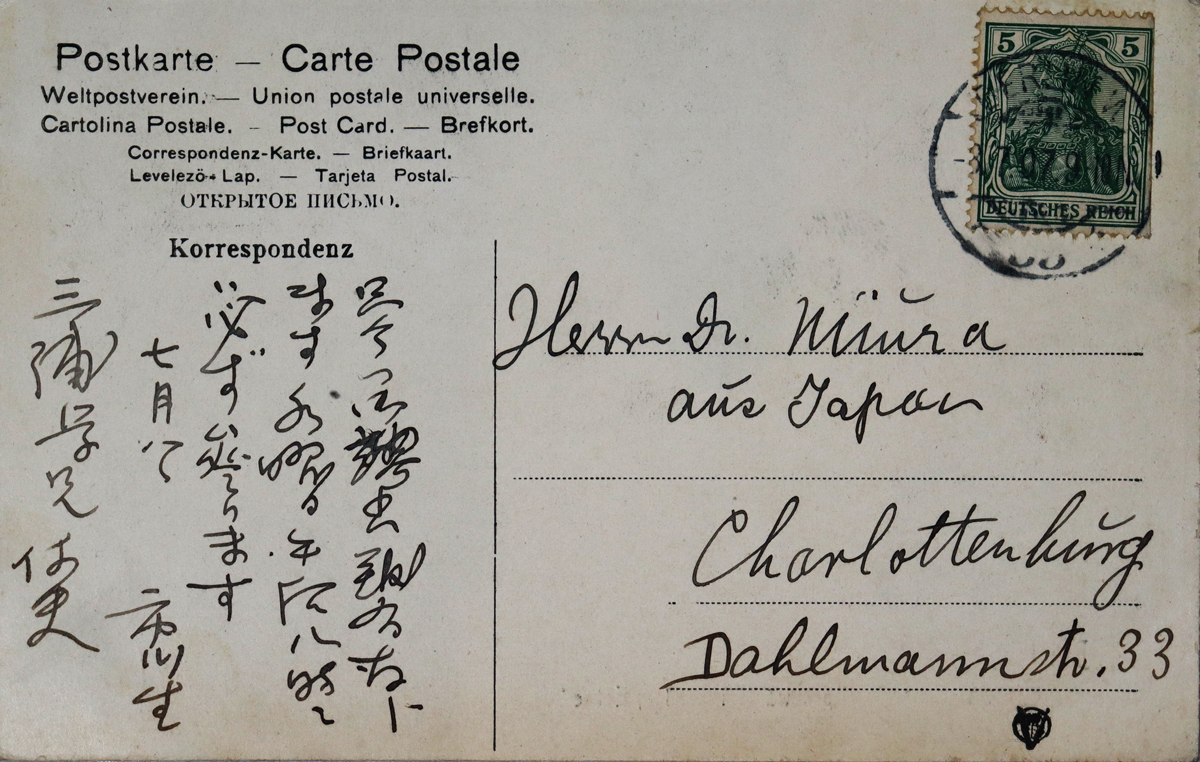 Postkarte — Carte Postale
Weltpostverein. — Union postale universelle.
Cartolina Postale. – Post Card. — Brefkort.
Correspondenz-Karte. — Briefkaart.
Levelezö- Lap. — Tarjeta Postal.
ОТКРЫТОЕ ПИСЬМО.
Korrespondenz
5 5
DEUTSCHES REICH
Herrn Dr. Miura
aus Japan
Charlottenburg
Dahlmannstr. 33
ます 水曜日午后八時ニ
必ず参ります
七月八
市川生
三浦学兄